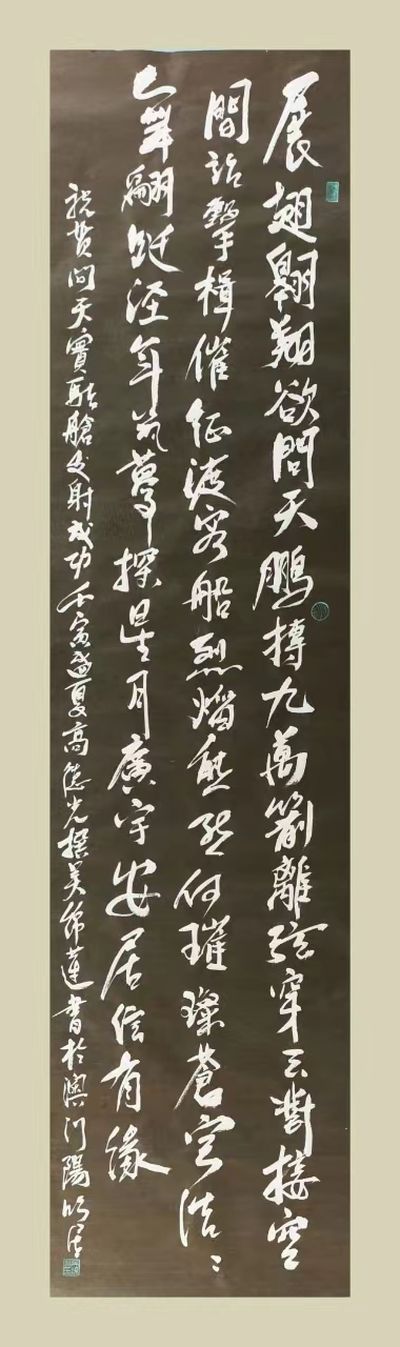 展翅翱翔欲問天鵬摶九萬箭離弦穿雲對接空
間站擊楫催征渡客船烈焰熊熊何璀璨蒼穹浩々
舞翩躚經年筑夢探星月廣宇安居信有緣
祝賀問天實驗艙發射成功壬寅盛夏高德光撰吳錦蓮書於澳門陽明居